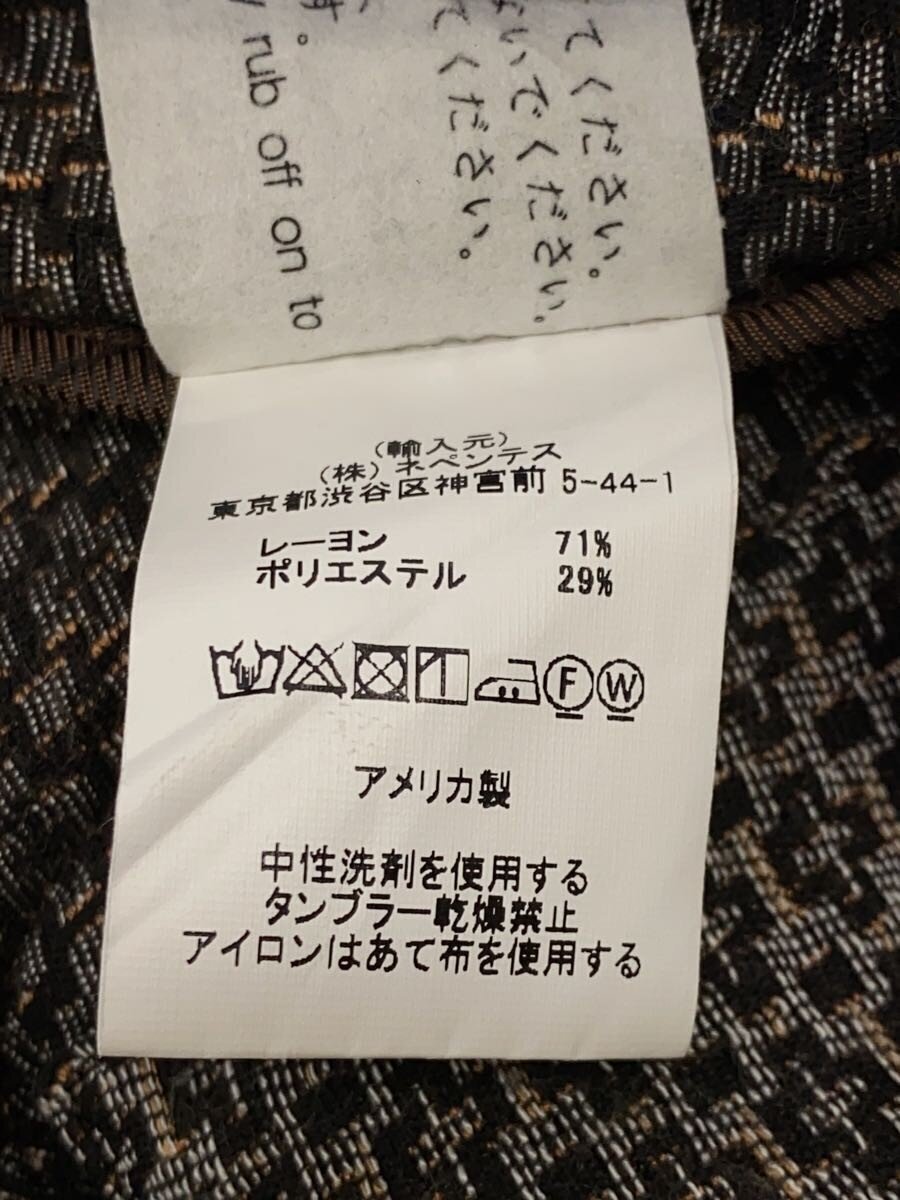 てください。
いでください。
てください。
す。
rub off on to
(輸入元)
(株)ネペンテス
東京都渋谷区神宮前 5-44-1
レーヨン 71%
ポリエステル 29%
F W
アメリカ製
中性洗剤を使用する
タンブラー乾燥禁止
アイロンはあて布を使用する